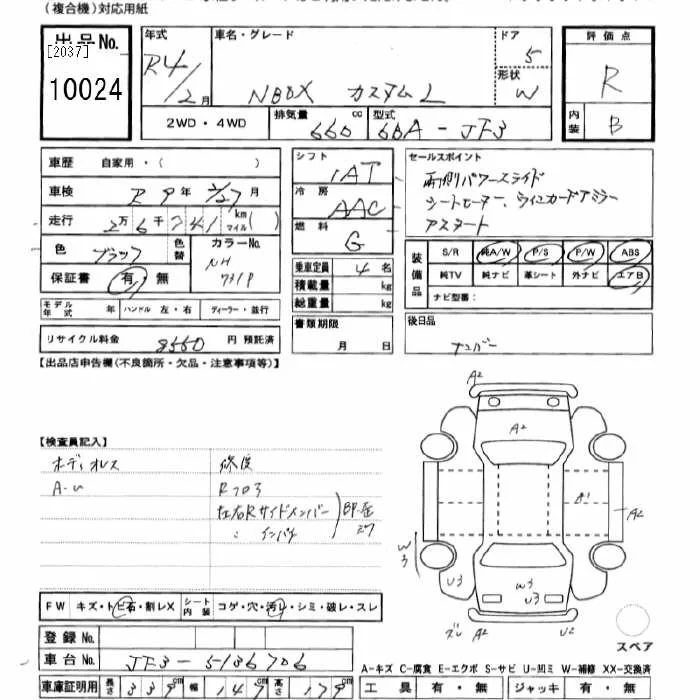 (複合機)対応用紙
出品No. [2037] 10024
年式 R4/2月
車名・グレード NBOX カスタムL
ドア 5
形状 W
評価点 R
内装 B
2WD・4WD
排気量 660 cc
型式 6BA-JF3
車歴 自家用・( )
車検 R 9年 2/27月
走行 2万6千741 km マイル( )
色 ブラック
色替
カラーNo. NH 731P
保証書 有・無
シフト IAT
冷房 AAC
燃料 G
乗車定員 4名
積載量 kg
総重量 kg
書類期限 月 日
セールスポイント
両側パワースライド
シートヒーター、ウインカードアミラー
アスタート
装備品 S/R 純A/W P/S P/W ABS
純TV 純ナビ 革シート 外ナビ エアB
ナビ型番:
モデル年式 年 ハンドル 左・右 ディーラー・並行
リサイクル料金 8560 円 預託済
後日品
ナンバー
【出品店申告欄(不良箇所・欠品・注意事項等)】
【検査員記入】
ボディオレス
A・U
修復
R703
左右Rサイドメンバー
インパネ
A2
A2
A1
A2
W3
U3
W3
U3
ズレ A2 U2
スペア
FW キズ・トビ石・割レX
シート内装 コゲ・穴・汚レ・シミ・破レ・スレ
登録No.
車台No. JF3-5136706
車庫証明用 長さ 339cm 幅 147cm 高さ 179cm
A-キズ C-腐食 E-エクボ S-サビ U-凹ミ W-補修 XX-交換済
工具 有・無 ジャッキ 有・無